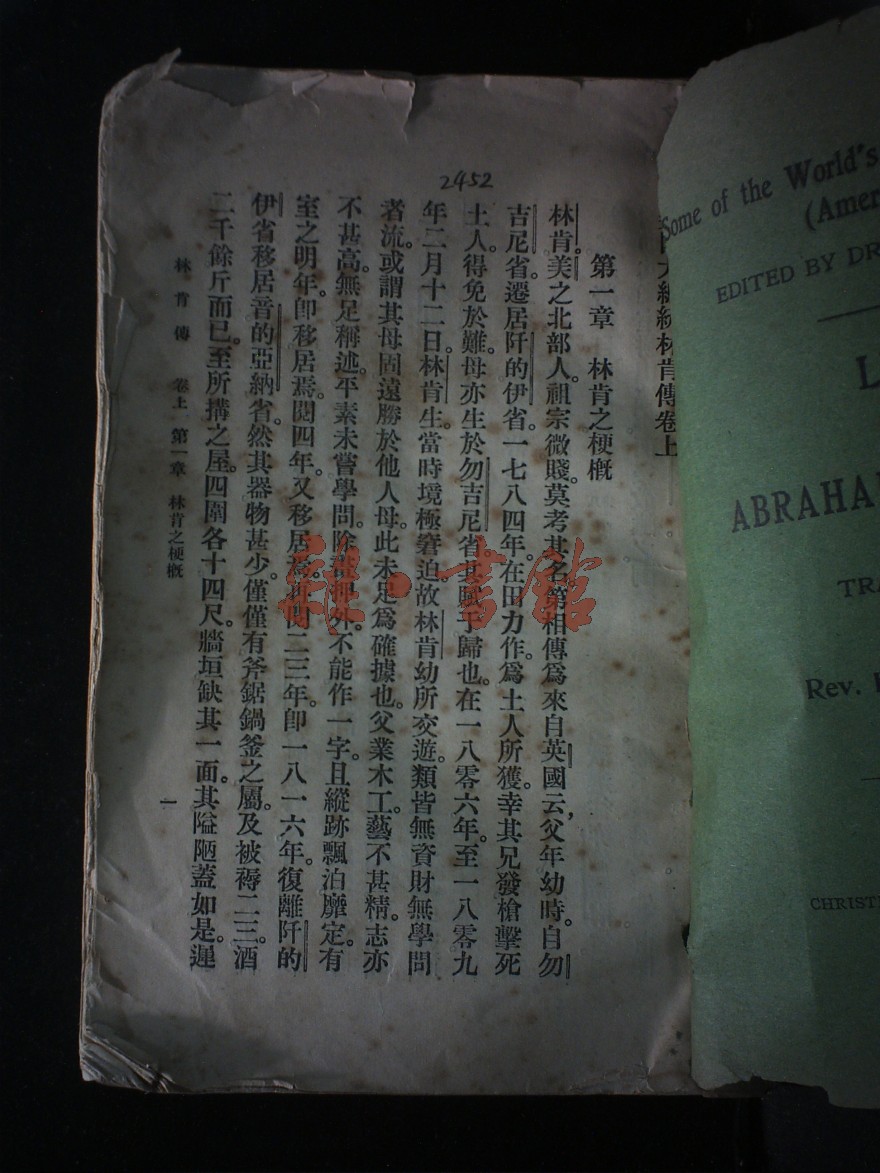 2452
大總統林肯傳卷上
第一章　林肯之梗槪
林肯。美之北部人。祖宗微賤。莫考其名。第相傳爲來自英國云。父年幼時。自勿
吉尼省。遷居阡的伊省。一七八四年。在田力作。爲土人所獲。幸其兄發槍擊死
土人。得免於難。母亦生於勿吉尼省。其于歸也。在一八零六年。至一八零九
年二月十二日。林肯生。當時境極窘迫。故林肯幼所交遊。類皆無資財無學問
者流。或謂其母固遠勝於他人母。此未足爲確據也。父業木工。藝不甚精。志亦
不甚高。無足稱述。平素未嘗學問。除押外。不能作一字。且縱跡飄泊靡定。有
室之明年。卽移居焉。閱四年。又移居焉。再閱二三年。卽一八一六年。復離阡的
伊省。移居音的亞納省。然其器物甚少。僅僅有斧鋸鍋釜之屬。及被褥二三。酒
二千餘斤而已。至所搆之屋。四圍各十四尺。牆垣缺其一面。其隘陋蓋如是。遲
林肯傳　卷上　第一章　林肯之梗槪
一
Some of the World's
(Amer
EDITED BY DR
L
ABRAHA
TRA
Rev.
CHRIST
雅·書館